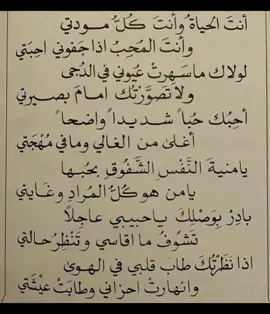 أنتَ الحياةُ وأنتَ كُلُّ مودتي
وأنتَ المُحِبُ اذا جَفوني احِبَتي
لولاك ماسَهِرتْ عُيوني في الدُجى
ولا تَصوَّرتُك امامَ بصيرتي
أحِبُك حُباً شديداً واضحاً
أغلىٰ من الغالي ومافي مُهْجَتي
يامنيةَ النَّفْسِ الشَّفُوقِ بحُبها
يامن هو كُلُّ المُرادِ وغايتي
بادِرْ بِوَصْلِكَ ياحبيبي عاجِلاً
تَشوفُ ما اقاسي وتَنْظِرُ حالتي
اذا نَظَرْتُكَ طابَ قلبي في الهوىٰ
وانهارتْ احزاني وطابَتْ عيْشَتي